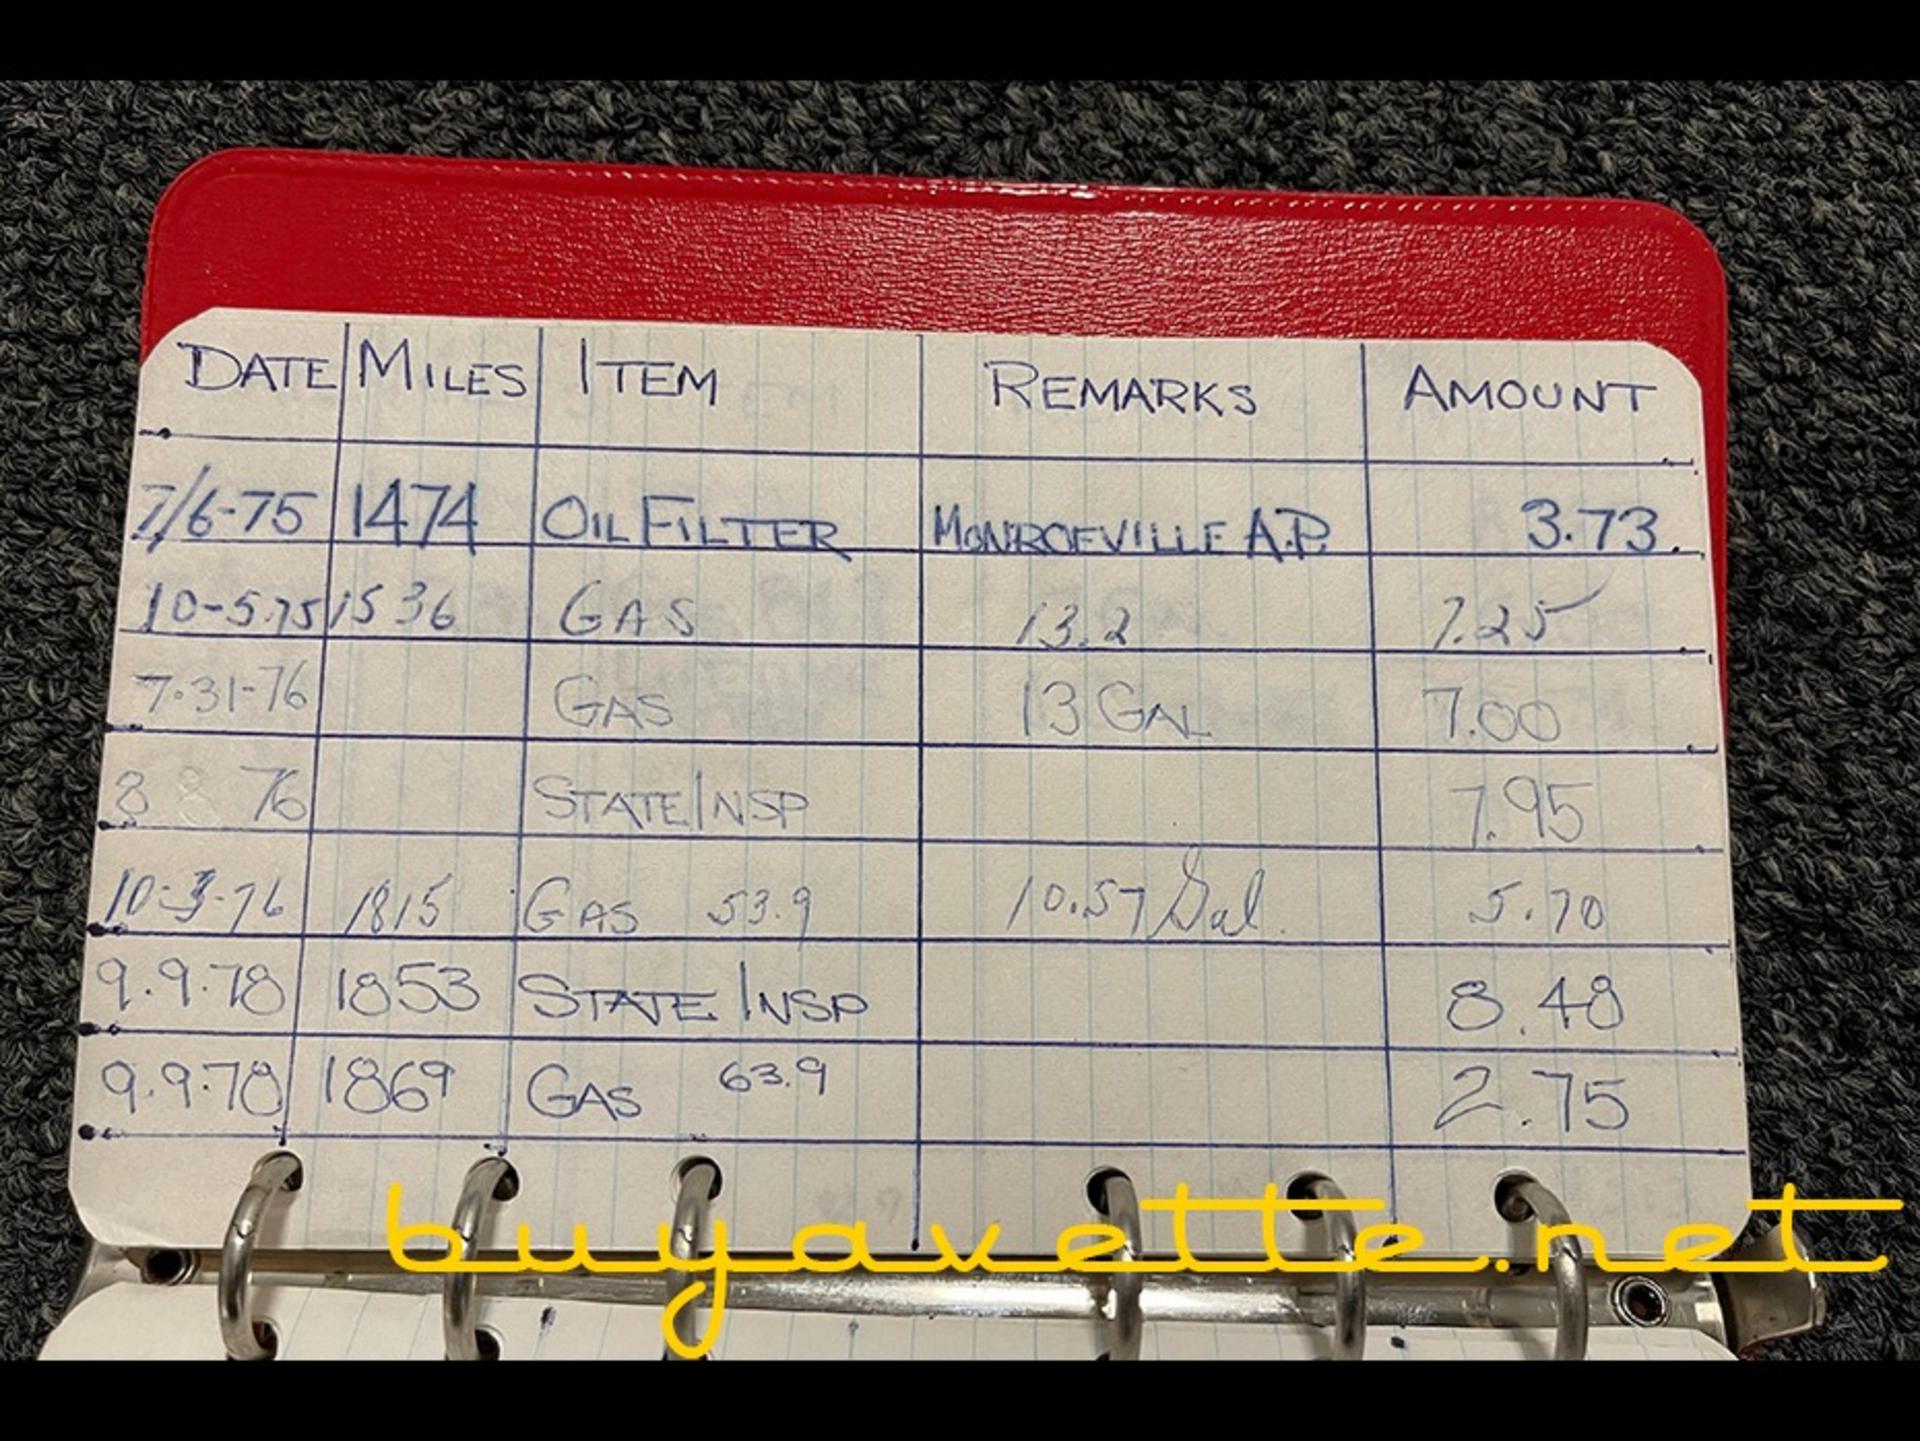 DATE MILES ITEM REMARKS AMOUNT
7/6-75 1474 OIL FILTER MONROEVILLE A.P. 3.73
10-5-75 1536 GAS 13.2 7.25
7-31-76 GAS 13 GAL 7.00
8 8 76 STATE INSP 7.95
10-3-76 1815 GAS 53.9 10.57 Gal. 5.70
9.9.78 1853 STATE INSP 8.48
9.9.78 1869 GAS 63.9 2.75
buyavette.net